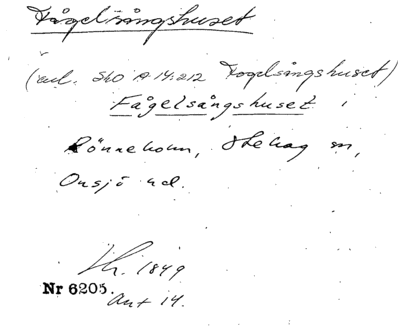 Fågelsångshuset
(enl. SkO A 14:212 Fogelsångshuset)
Fågelsångshuset i
Rönneholm, Stehag sn,
Onsjö hd.
Hr. 1849
Nr 6205.
Ant 14.